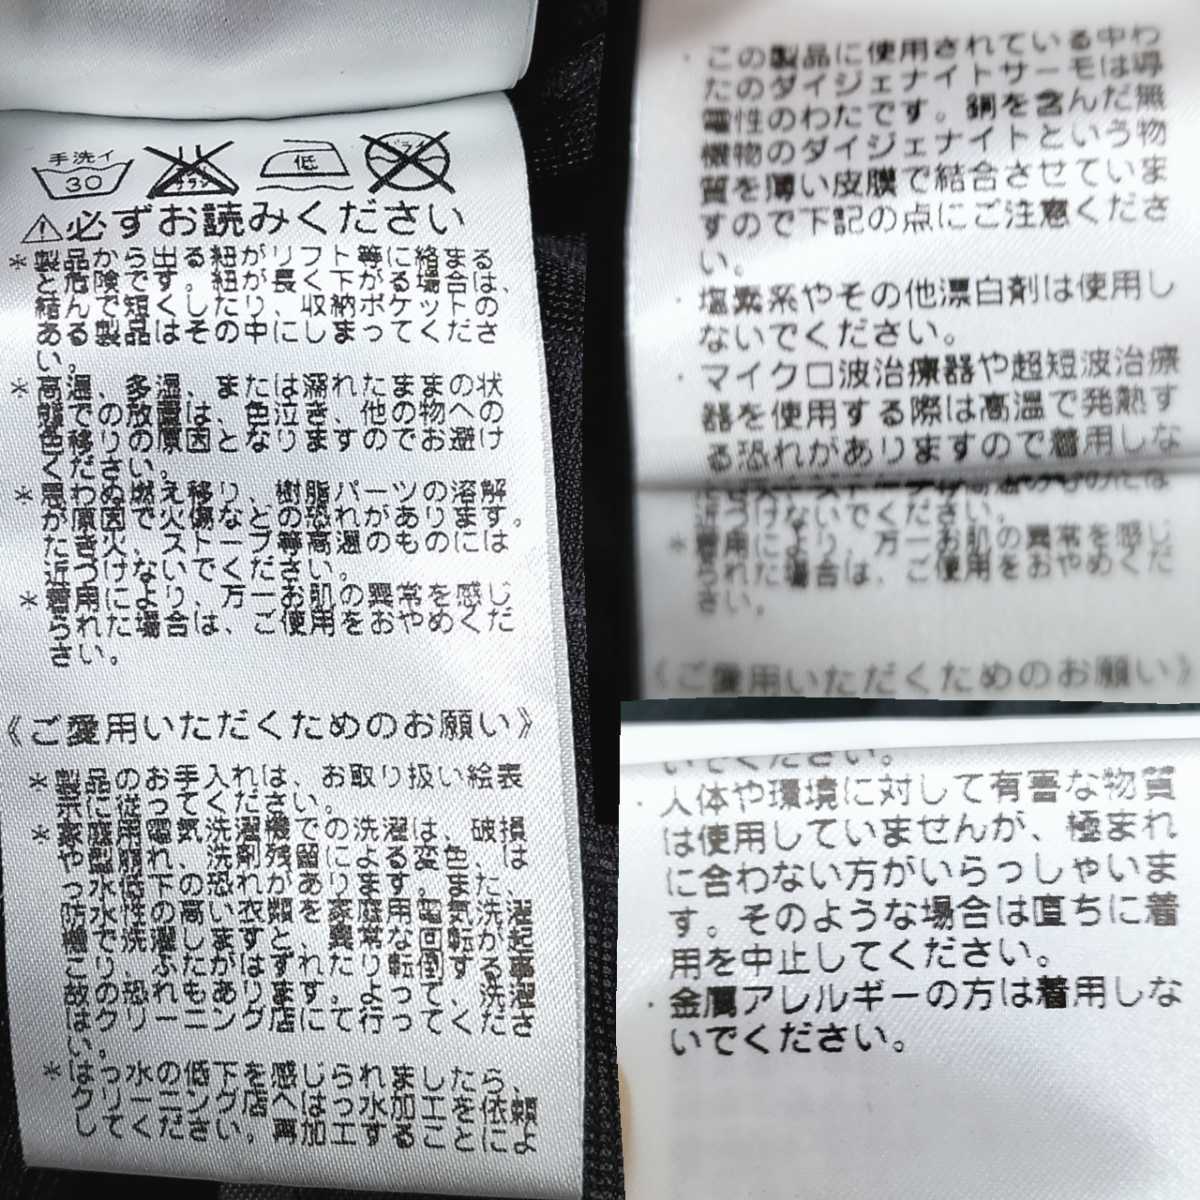 手洗イ
30
低
必ずお読みください
＊製品から出る紐がリフト等に絡まる
と危険です。紐が長く下がる場合は、
結んで短くしたり、収納ポケットの
ある製品はその中にしまってくださ
い。
＊高温、多湿、または濡れたままの状
態での放置は、色泣き、他の物への
色移りの原因となりますのでお避け
ください。
＊思わぬ燃え移り、樹脂パーツの溶解
が原因で火傷などの恐れがあります。
たき火、ストーブ等高温のものには
近づけないでください。
＊着用により、万一お肌の異常を感じ
られた場合は、ご使用をおやめくだ
さい。
《ご愛用いただくためのお願い》
＊製品のお手入れは、お取り扱い絵表
示に従ってください。
＊家庭用電気洗濯機での洗濯は、破損
や型崩れ、洗剤残留による変色、は
っ水低下の恐れがあります。また、
防水性の高い衣類を家庭用電気洗濯
機で洗濯しますと、異常な回転が起
こり、ふたがはずれたり転倒する事
故の恐れもあります。よって、洗濯
はクリーニング店にて行ってくださ
い。
＊はっ水の低下を感じられましたら、
クリーニング店へはっ水加工を依頼
してください。再加工することによ
・この製品に使用されている中わ
たのダイジェナイトサーモは導
電性のわたです。銅を含んだ無
機物のダイジェナイトという物
質を薄い皮膜で結合させていま
すので下記の点にご注意くださ
い。
・塩素系やその他漂白剤は使用し
ないでください。
・マイクロ波治療器や超短波治療
器を使用する際は高温で発熱す
る恐れがありますので着用しな
近づけないでください。
＊着用により、万一お肌の異常を感じ
られた場合は、ご使用をおやめくだ
さい。
《ご愛用いただくためのお願い》
いでください。
・人体や環境に対して有害な物質
は使用していませんが、極まれ
に合わない方がいらっしゃいま
す。そのような場合は直ちに着
用を中止してください。
・金属アレルギーの方は着用しな
いでください。